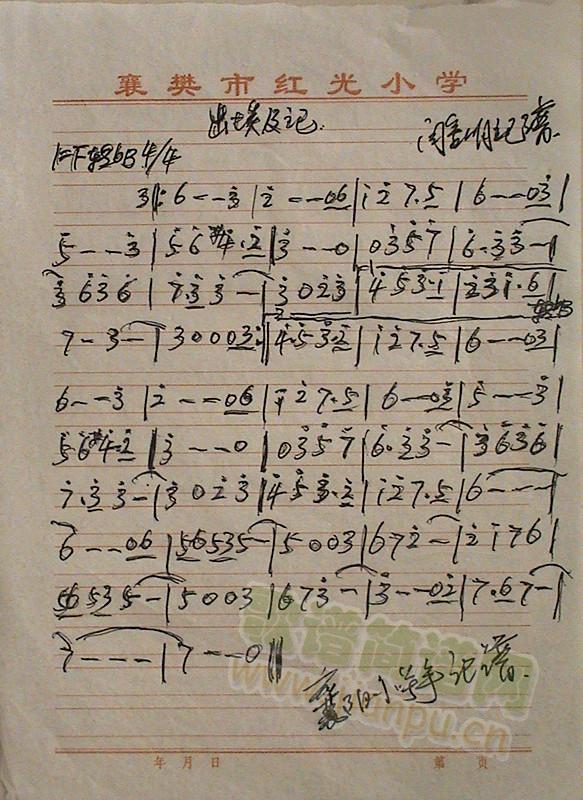 襄樊市红光小学
出埃及记
记谱
1=F转bB 4/4
3 |: 6 - - 3 | 2 - - 06 | 1 2 7. 5 | 6 - - 03 |
5 - - 3 | 5 6 #4. 2 | 3 - - 0 | 0 3 5 7 | 6. 3 3 - |
3 6 3 6 | 7. 3 3 - | 3 0 2 3 | 4 5 3. 1 | 2 3 1. 6 |
转bB
7 - 3 - | 3 0 0 03 :| 4. 5 3. 2 | 1 2 7. 5 | 6 - - 03 |
6 - - 3 | 2 - - 06 | 1 2 7. 5 | 6 - - 03 | 5 - - 3 |
5 6 #4. 2 | 3 - - 0 | 0 3 5 7 | 6. 3 3 - | 3 6 3 6 |
7. 3 3 - | 3 0 2 3 | 4 5 3. 2 | 1 2 7. 5 | 6 - - - |
6 - - 06 | 56 53 5 - | 5 0 0 3 | 6 7 2 - | 2 1 7 6 |
56 53 5 - | 5 0 0 3 | 6 7 3 - | 3 - - 02 | 7. 6 7 - |
7 - - - | 7 - - 0 ||
歌谱简谱网
www.jianpu.cn
记谱
年 月 日
第 页